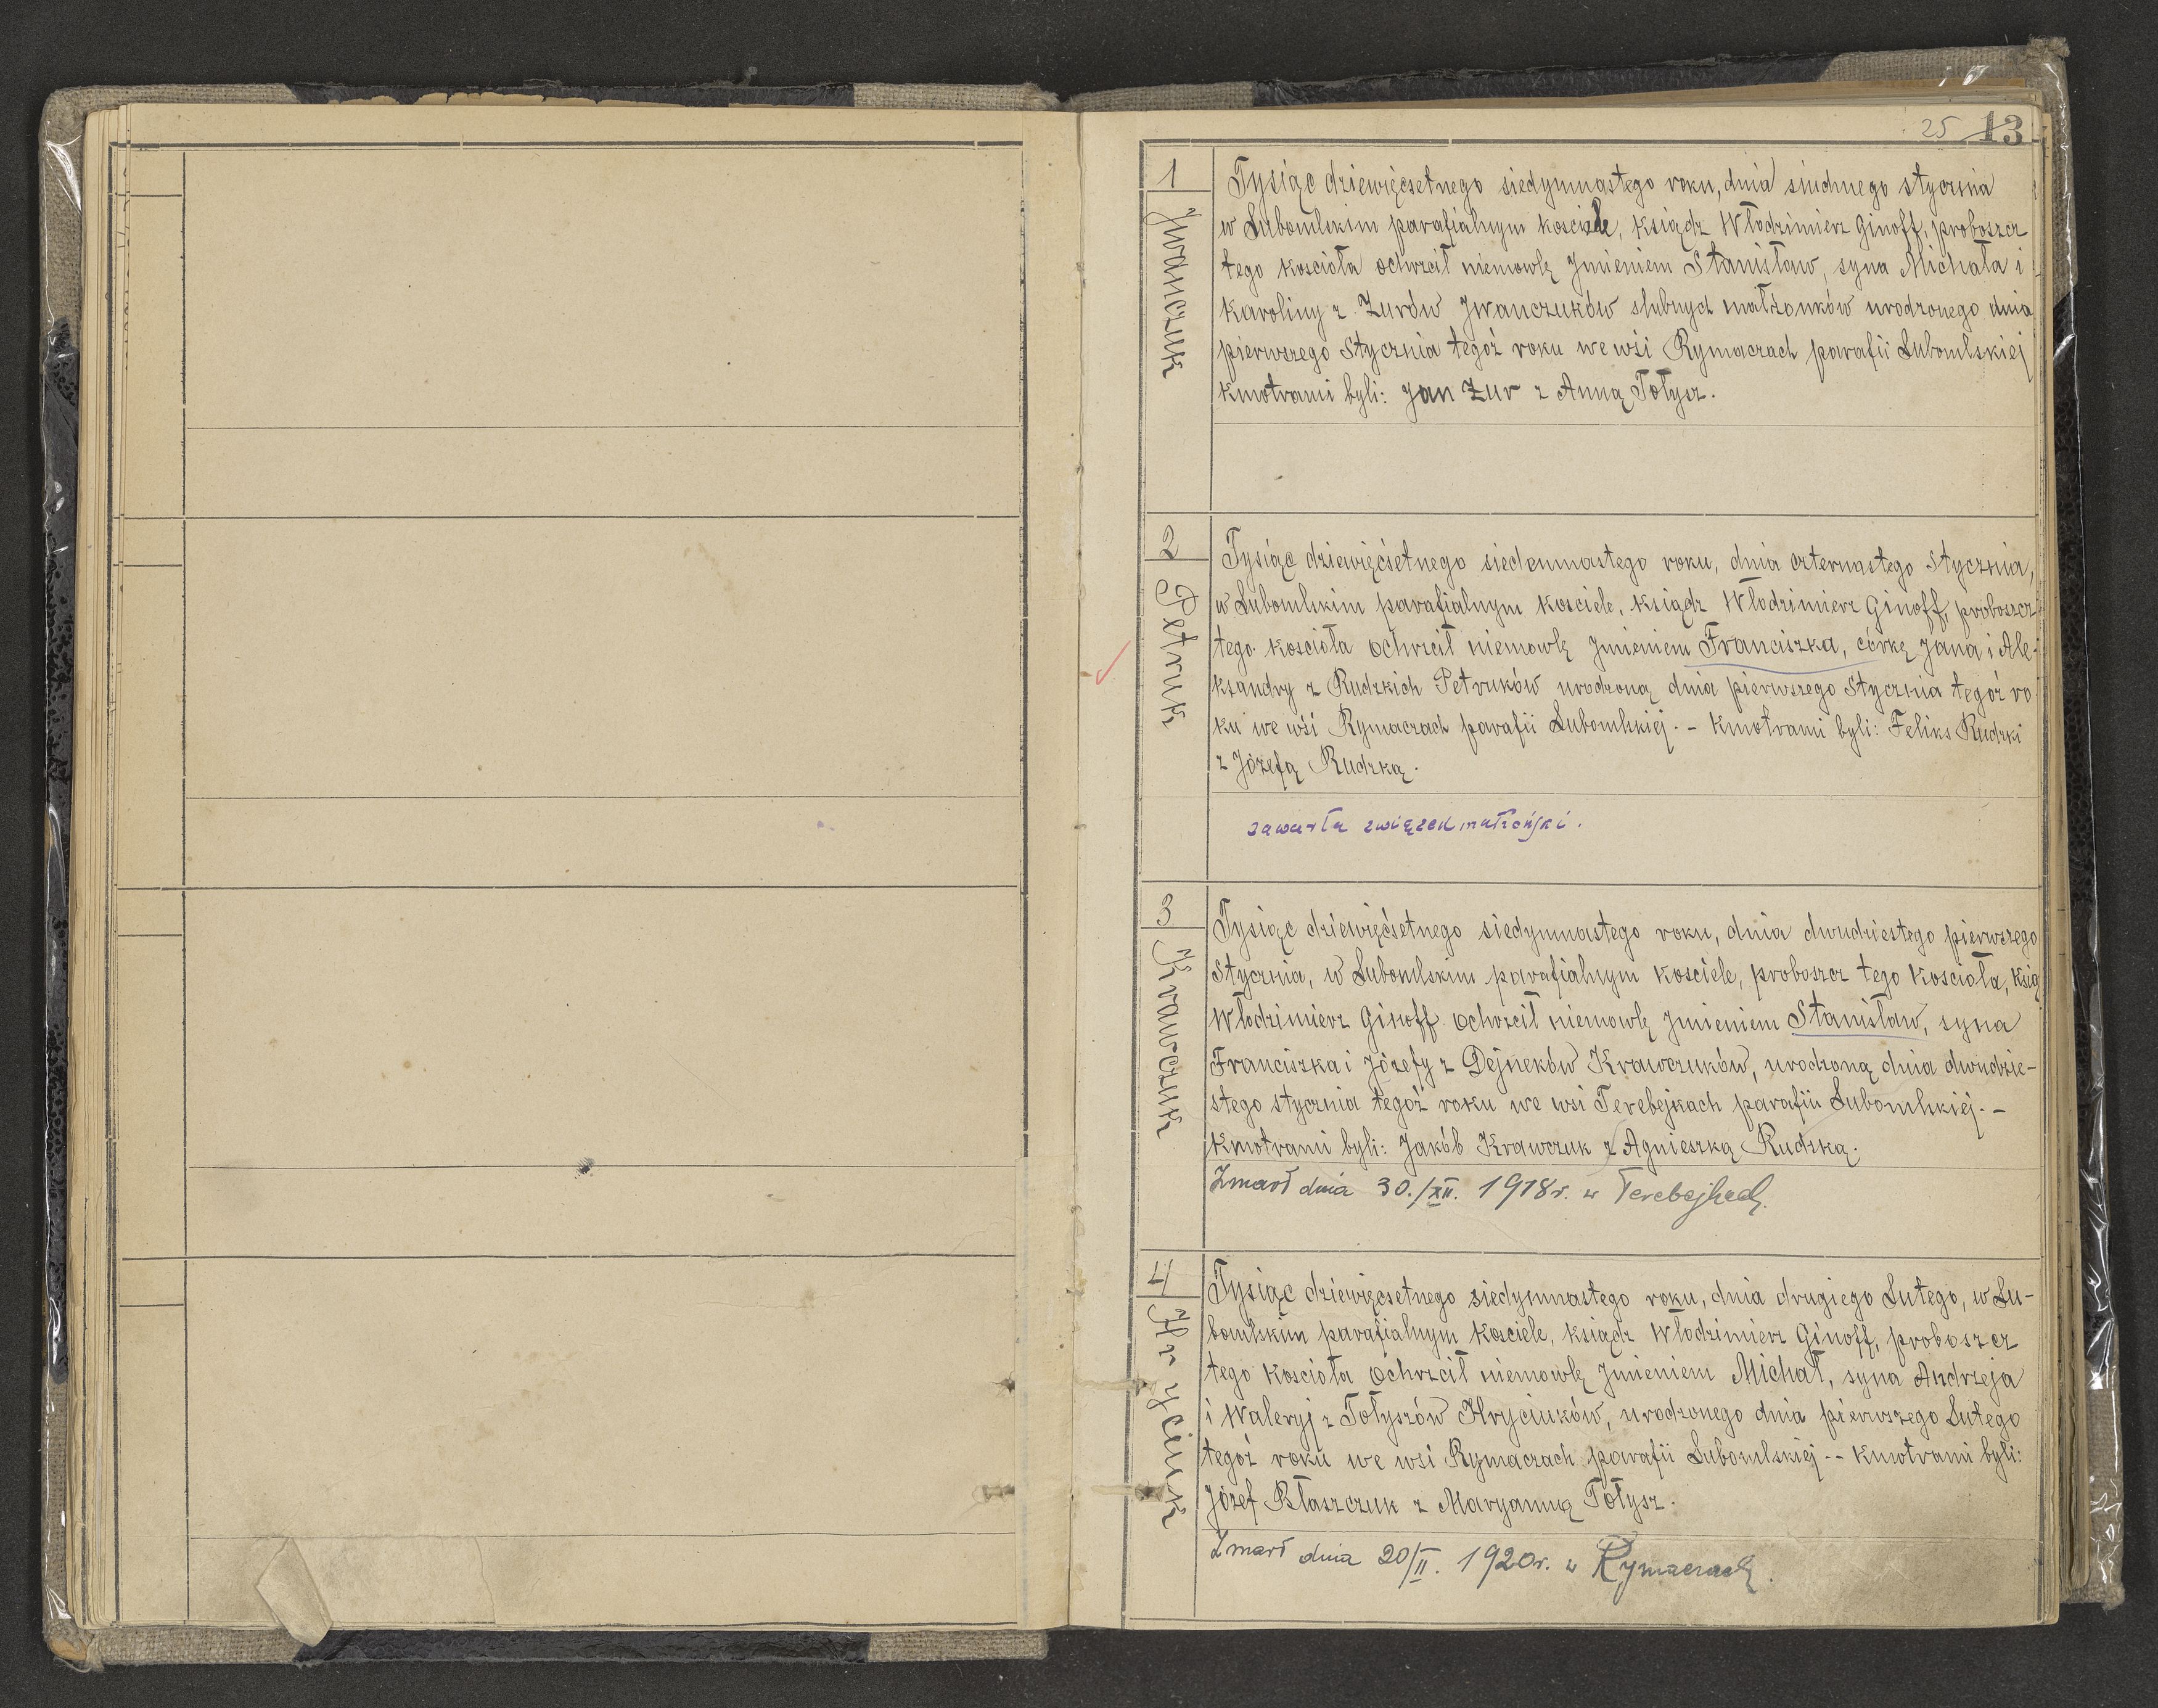 25 13
1
Jwanczuk
Tysiąc dziewięćsetnego siedymnastego roku, dnia siudmego stycznia
w Lubomlskim parafialnym kosciele, ksiądz Włodzimierz Ginoff, proboszcz
tego kościoła ochrzcił niemowlę Jmieniem Stanisław, syna Michała i
Karoliny z Żurów Jwanczuków slubnych małżonków urodzonego dnia
pierwszego Stycznia tegoż roku we wsi Rymaczach parafii Lubomlskiej
Kmotrami byli: Jan Żur z Anną Tołysz.
2
Petruk
Tysiąc dziewięćsetnego siedemnastego roku, dnia czternastego Stycznia,
w Lubomlskim parafialnym kosciele, ksiądz Włodzimierz Ginoff, proboszcz
tego kościoła ochrzcił niemowlę Jmieniem Franciszka, córkę Jana i Ale-
ksandry z Rudzkich Petruków urodzoną dnia pierwszego Stycznia tegoż ro
ku we wsi Rymaczach parafii Lubomlskiej. - Kmotrami byli: Feliks Rudzki
z Józefą Rudzką.
zawarła związek małżeński.
3
Krawczuk
Tysiąc dziewięćsetnego siedymnastego roku, dnia dwudziestego pierwszego
Stycznia, w Lubomlskim parafialnym kosciele, proboszcz tego kościoła, ksią
Włodzimierz Ginoff ochrzcił niemowlę Jmieniem Stanisław, syna
Franciszka i Józefy z Dejneków Krawczuków, urodzoną dnia dwudzie-
stego stycznia tegoż roku we wsi Terebejkach parafii Lubomlskiej. -
Kmotrami byli: Jakób Krawczuk z Agnieszką Rudzką.
Zmarł dnia 30./XII. 1918 r. w Terebejkach.
4
Hryciuk
Tysiąc dziewięćsetnego siedymnastego roku, dnia drugiego Lutego, w Lu-
bomlskim parafialnym kosciele, ksiądz Włodzimierz Ginoff, proboszcz
tego kościoła ochrzcił niemowlę Jmieniem Michał, syna Andrzeja
i Waleryj z Tołyszów Hryciuków, urodzonego dnia pierwszego Lutego
tegoż roku we wsi Rymaczach parafii Lubomlskiej -- Kmotrami byli:
Józef Błaszczuk z Maryanną Tołysz.
Zmarł dnia 20/II. 1920 r. w Rymaczach.